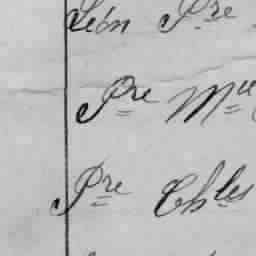 Léon Pre
Pre Mce
Pre Chles